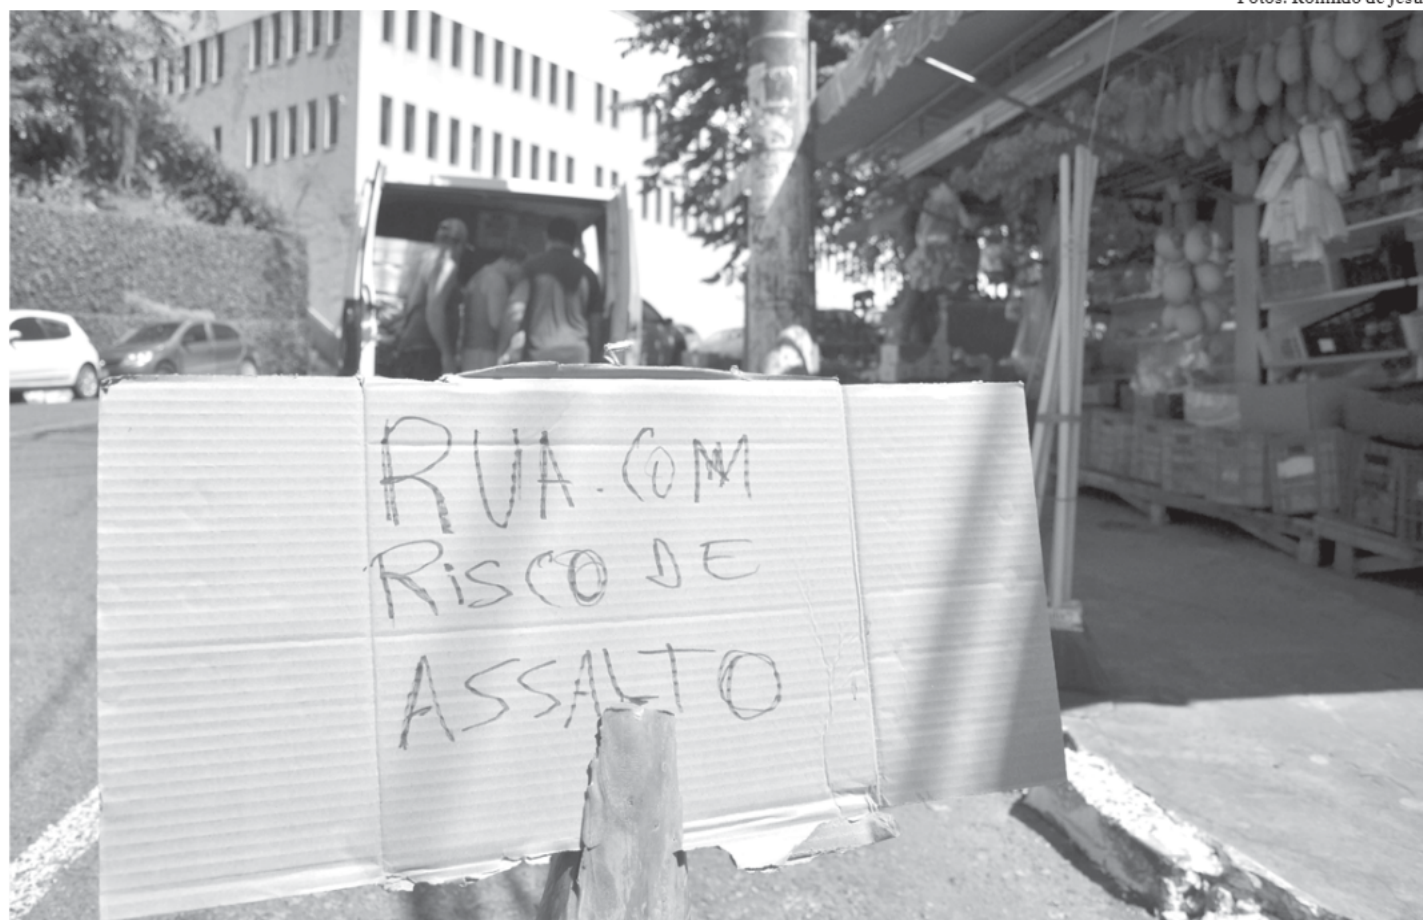 RUA.COM
RISCO DE
ASSALTO